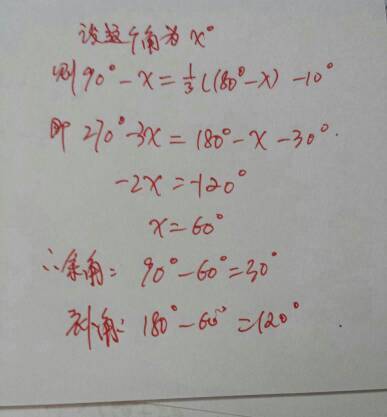 设这个角为 x°
则 90° - x = 1/3 (180° - x) - 10°
即 270° - 3x = 180° - x - 30°.
-2x = -120°
x = 60°
∴余角: 90° - 60° = 30°
补角: 180° - 60° = 120°